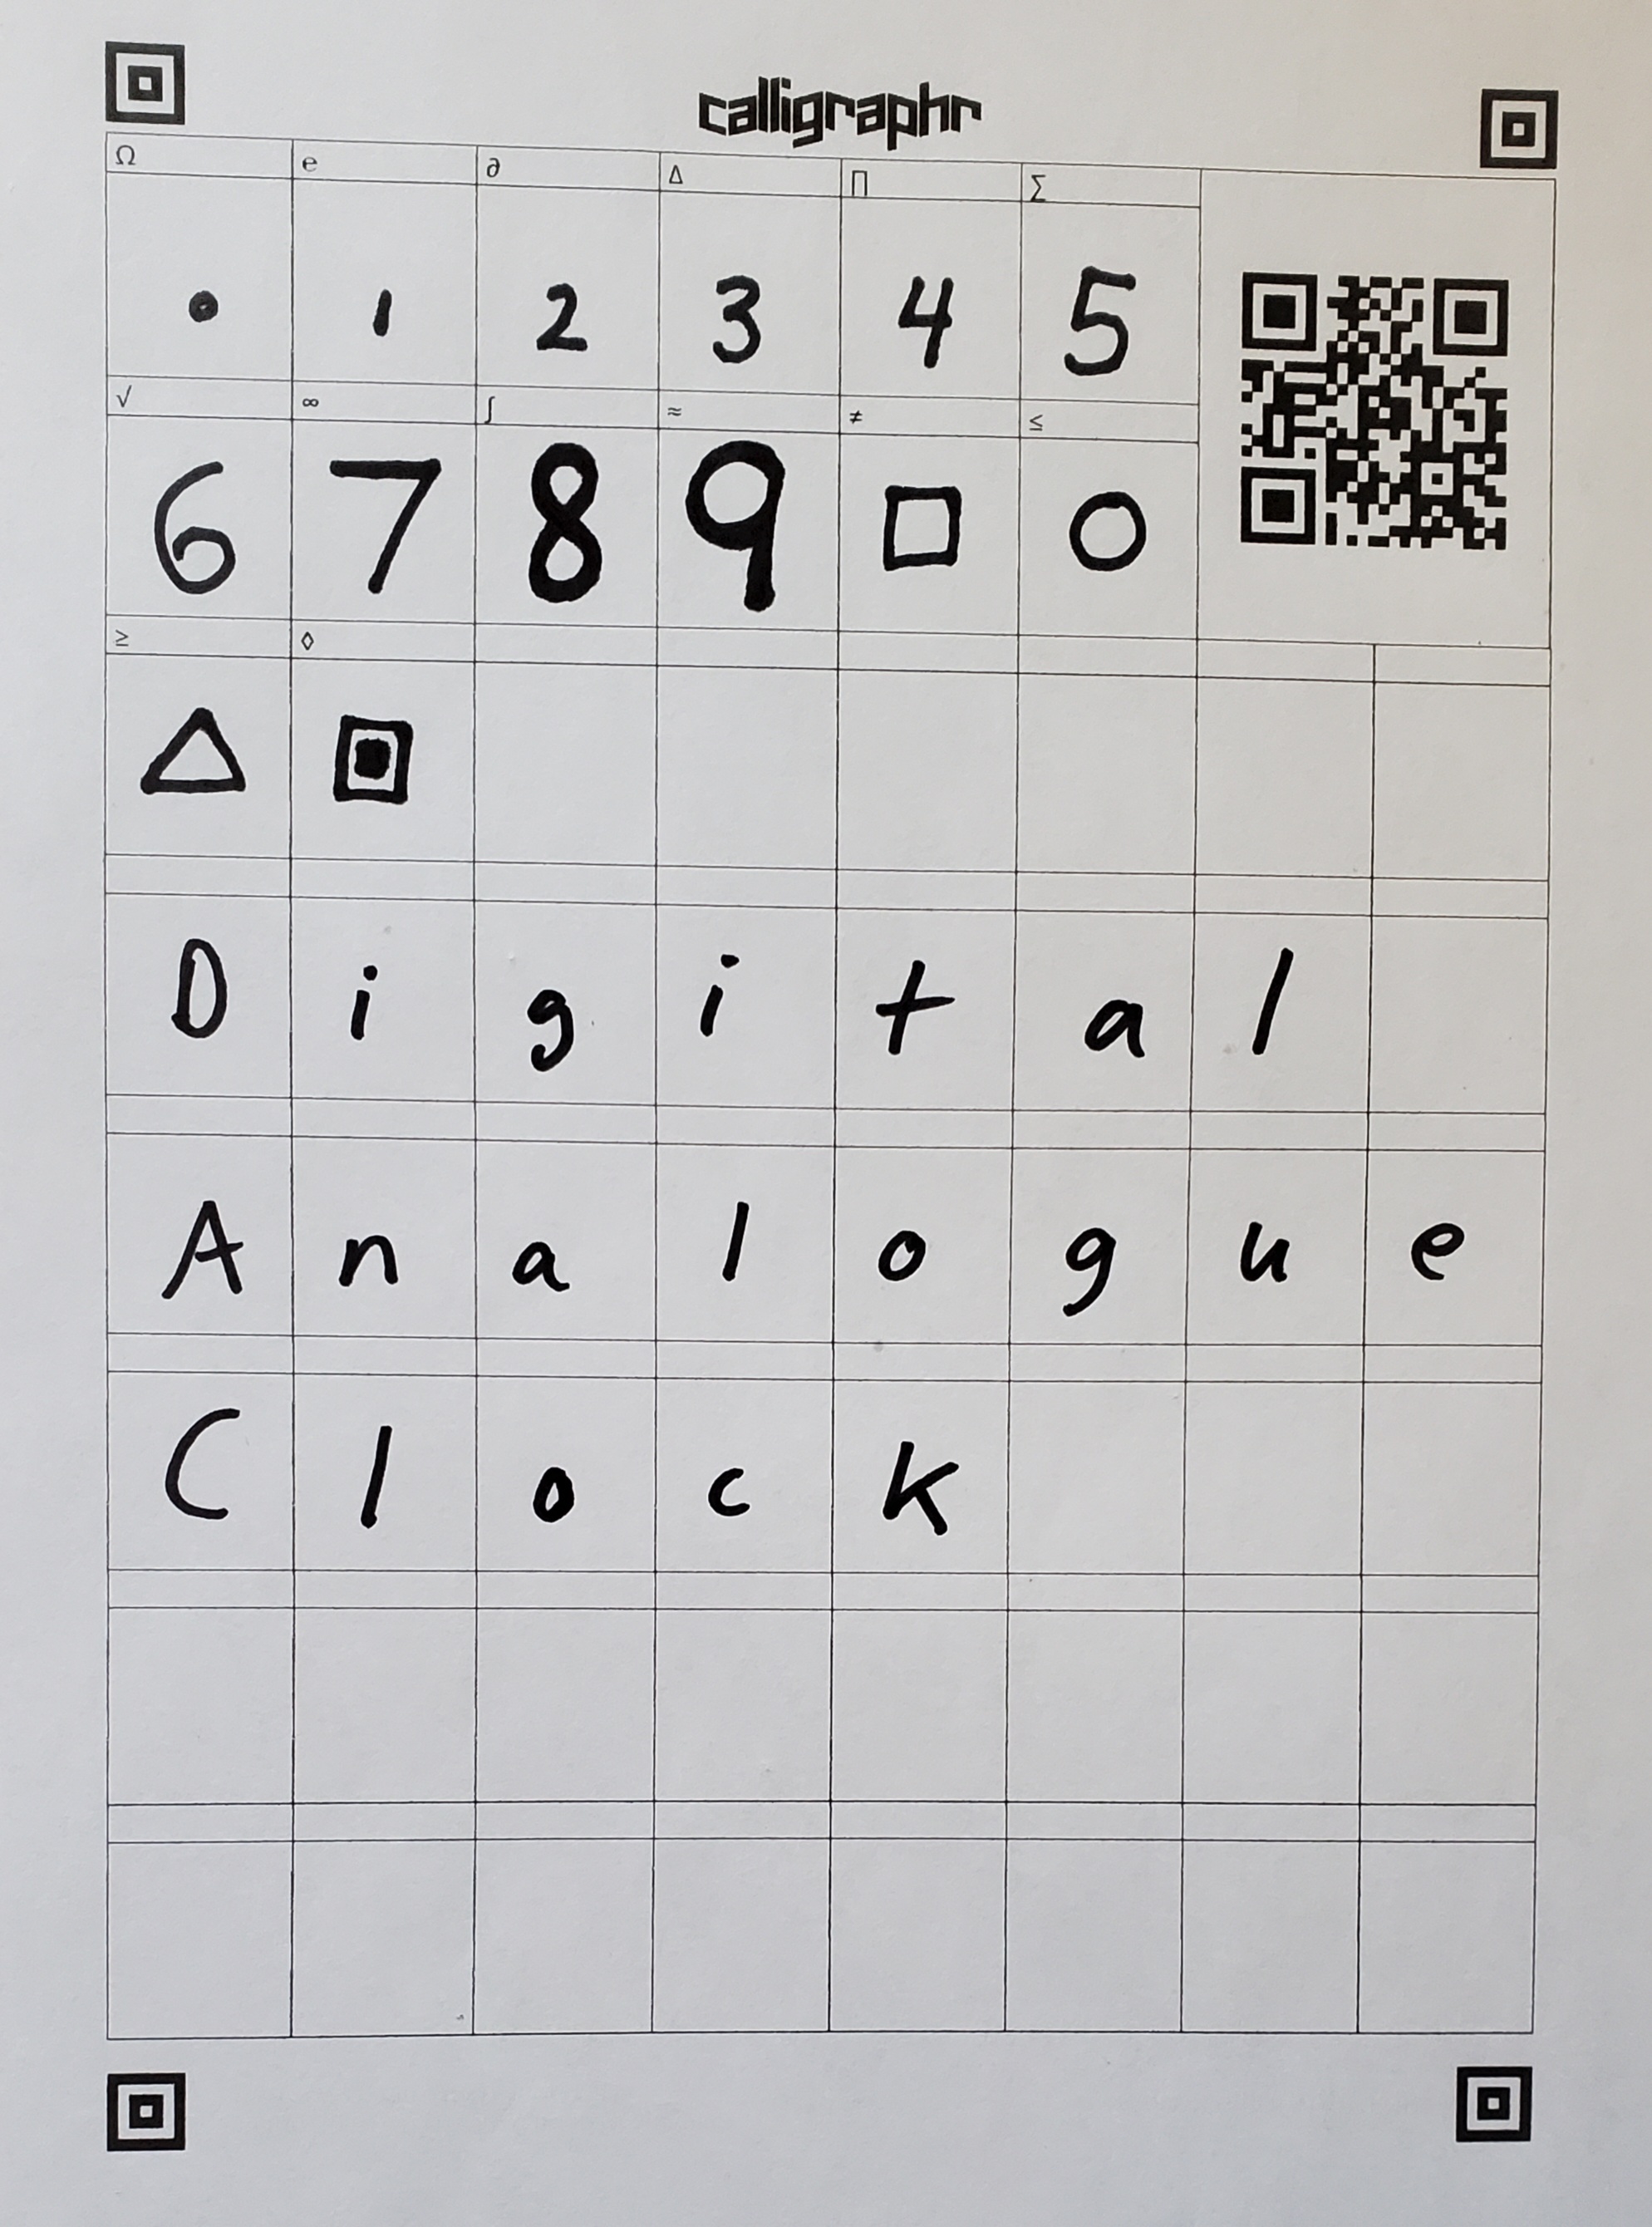 calligraphr
Ω e ∂ Δ ∏ ∑
0 1 2 3 4 5
√ ∞ ∫ ≈ ≠ ≤
6 7 8 9 □ ○
≥ ◊
△ ▣
D i g i t a l
A n a l o g u e
C l o c k